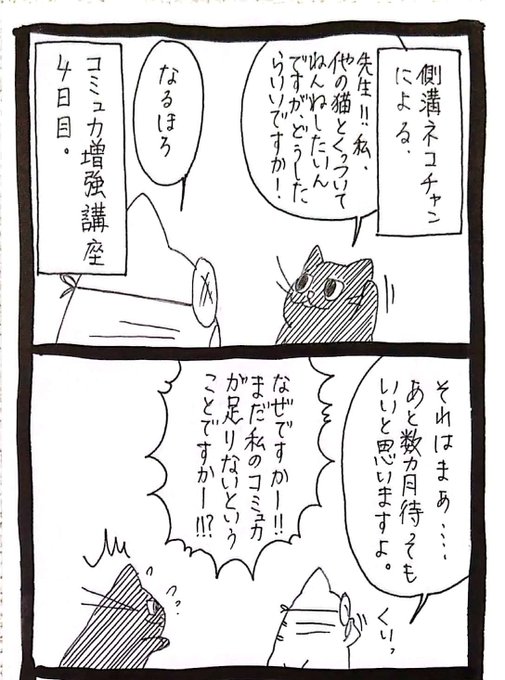 側溝ネコチャン
による、
先生!!私、
他の猫とくっついて
ねんねしたいん
ですが、どうした
らいいですか!
なるほろ
コミュカ増強講座
4日目。
それはまぁ‥‥
あと数カ月待っても
いいと思いますよ。
くいっ
なぜですかー!!
まだ私のコミュカ
が足りないという
ことですかー!!?